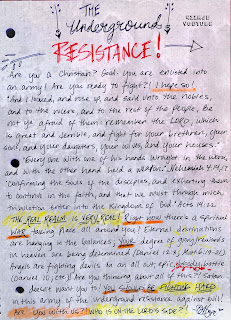 THE
Underground
RESISTANCE!
Are you a Christian? God: you are enlisted into
an army! Are you ready to fight?! I hope so!
"And I looked, and rose up, and said unto the nobles,
and to the rulers, and to the rest of the people, Be
not ye afraid of them: remember the LORD, which
is great and terrible, and fight for your brethren, your
sons, and your daughters, your wives, and your houses."
"Every one with one of his hands wrought in the work,
and with the other hand held a weapon." Nehemiah 4:14,17
"Confirming the souls of the disciples, and exhorting them
to continue in the faith, and that we must through much
tribulation enter into the kingdom of God." Acts 14:22.
THE REAL REALM IS VERY REAL! Right now there's a spiritual
WAR taking place all around you! Eternal destinations
are hanging in the balances; YOUR degree of glory/rewards
in heaven are being determined (Daniel 12:3; Matt 6:19-21)
Angels are fighting devils in an all out, epic battle
(Daniel 10; etc.) Are you thinking about all of this? Satan
doesn't want you to! YOU SHOULD BE FIGHTING HARD
in this army of the underground resistance against evil!
Are you with us? WHO IS ON THE LORD'S SIDE?!